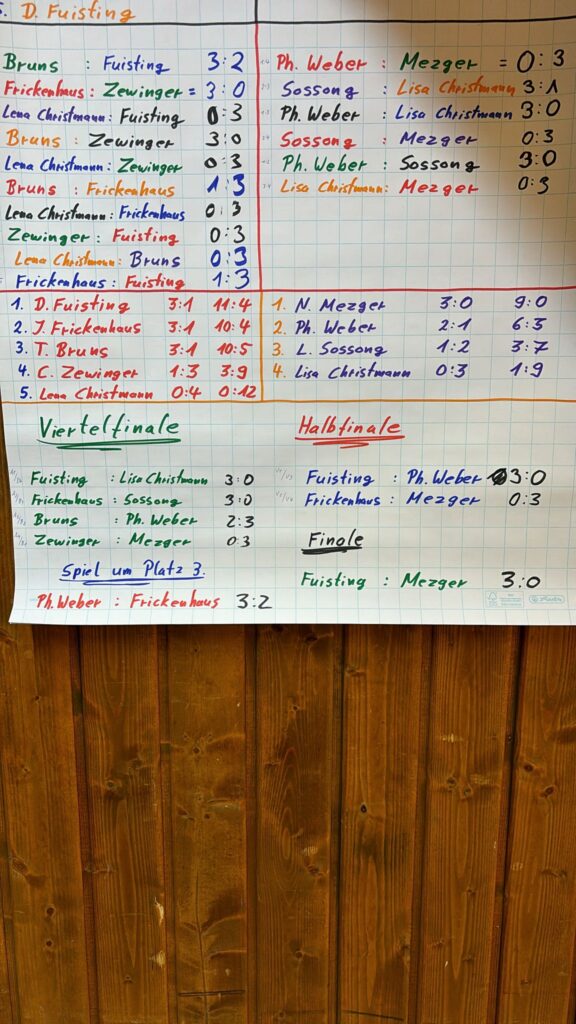 5. D. Fuisting
Bruns : Fuisting 3:2
Frickenhaus : Zewinger = 3:0
Lena Christmann : Fuisting 0:3
Bruns : Zewinger 3:0
Lena Christmann : Zewinger 0:3
Bruns : Frickenhaus 1:3
Lena Christmann : Frickenhaus 0:3
Zewinger : Fuisting 0:3
Lena Christmann : Bruns 0:3
Frickenhaus : Fuisting 1:3
Ph. Weber : Mezger = 0:3
Sossong : Lisa Christmann 3:1
Ph. Weber : Lisa Christmann 3:0
Sossong : Mezger 0:3
Ph. Weber : Sossong 3:0
Lisa Christmann : Mezger 0:3
1. D. Fuisting 3:1 11:4
2. J. Frickenhaus 3:1 10:4
3. T. Bruns 3:1 10:5
4. C. Zewinger 1:3 3:9
5. Lena Christmann 0:4 0:12
1. N. Mezger 3:0 9:0
2. Ph. Weber 2:1 6:3
3. L. Sossong 1:2 3:7
4. Lisa Christmann 0:3 1:9
Viertelfinale
Fuisting : Lisa Christmann 3:0
Frickenhaus : Sossong 3:0
Bruns : Ph. Weber 2:3
Zewinger : Mezger 0:3
Spiel um Platz 3.
Ph. Weber : Frickenhaus 3:2
Halbfinale
Fuisting : Ph. Weber 3:0
Frickenhaus : Mezger 0:3
Finale
Fuisting : Mezger 3:0